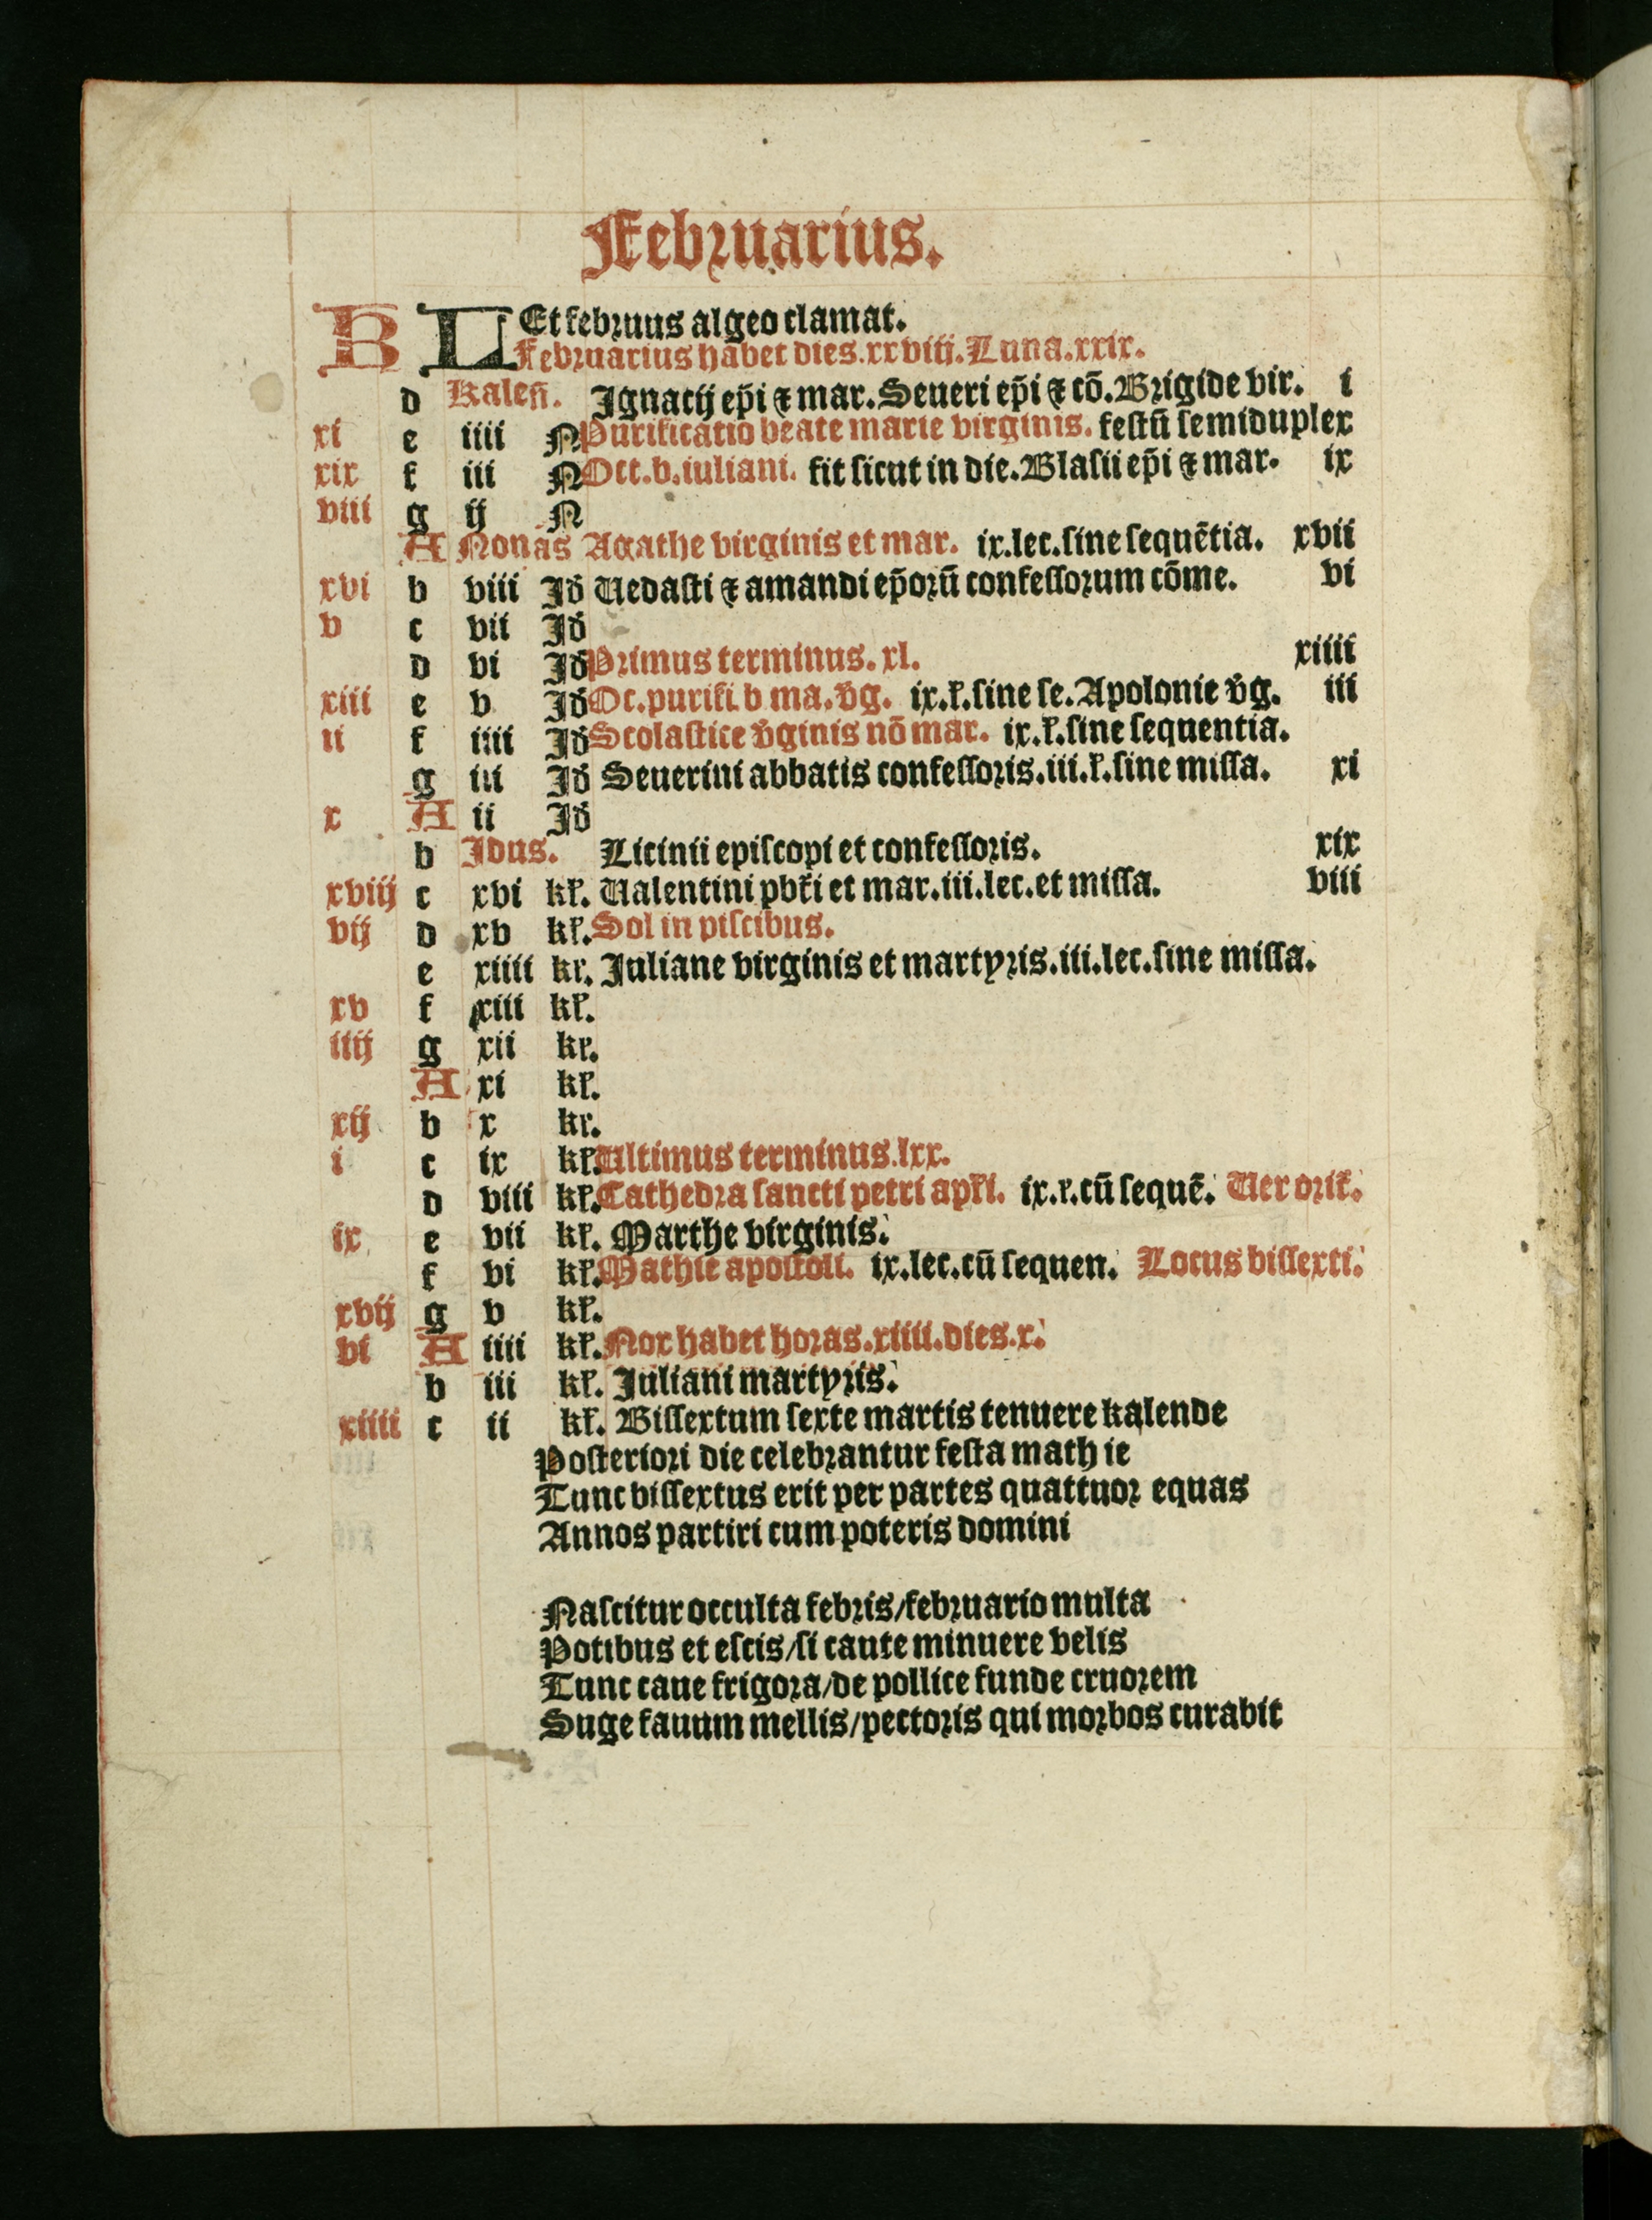 Februarius.
KL Et februus algeo clamat.
Februarius habet dies.xxviii.Luna.xxix.
d Kaleñ. Ignacij ep̄i ⁊ mar. Seueri ep̄i ⁊ cō. Brigide vir. i
xi e iiii N Purificatio beate marie virginis. festū semiduplex
xix f iii N Oct.b.iuliani. fit sicut in die. Blasii ep̄i ⁊ mar. ix
viii g ij N
A Nonas Agathe virginis et mar. ix.lec.sine sequētia. xvii
xvi b viii Id Uedasti ⁊ amandi ep̄orū confessorum cōme. vi
v c vii Id
d vi Id Primus terminus.xl. xiiii
xiii e v Id Oc.purifi.b ma.v̄g. ix.ł.sine se. Apolonie v̄g. iii
ii f iiii Id Scolastice v̄ginis nō mar. ix.ł.sine sequentia.
g iii Id Seuerini abbatis confessoris.iii.ł.sine missa. xi
x A ii Id
b Idus. Licinii episcopi et confessoris. xix
xviij c xvi kł. Ualentini pbr̄i et mar.iii.lec.et missa. viii
vij d xv kł. Sol in piscibus.
e xiiii kł. Iuliane virginis et martyris.iii.lec.sine missa.
xv f xiii kł.
iiij g xii kł.
A xi kł.
xij b x kł.
i c ix kł. Ultimus terminus.lxx.
d viii kł. Cathedra sancti petri apłi. ix.ł.cū sequē. Uer orit̄.
ix e vii kł. Marthe virginis.
f vi kł. Mathie apostoli. ix.lec.cū sequen. Locus bissexti.
xvij g v kł.
vi A iiii kł. Nox habet horas.xiiii.dies.x.
b iii kł. Iuliani martyris.
xiiii c ii kł. Bissextum sexte martis tenuere kalende
Posteriori die celebrantur festa math ie
Tunc bissextus erit per partes quattuor equas
Annos partiri cum poteris domini
Nascitur occulta febris/februario multa
Potibus et escis/si caute minuere velis
Tunc caue frigora/de pollice funde cruorem
Suge fauum mellis/pectoris qui morbos curabit